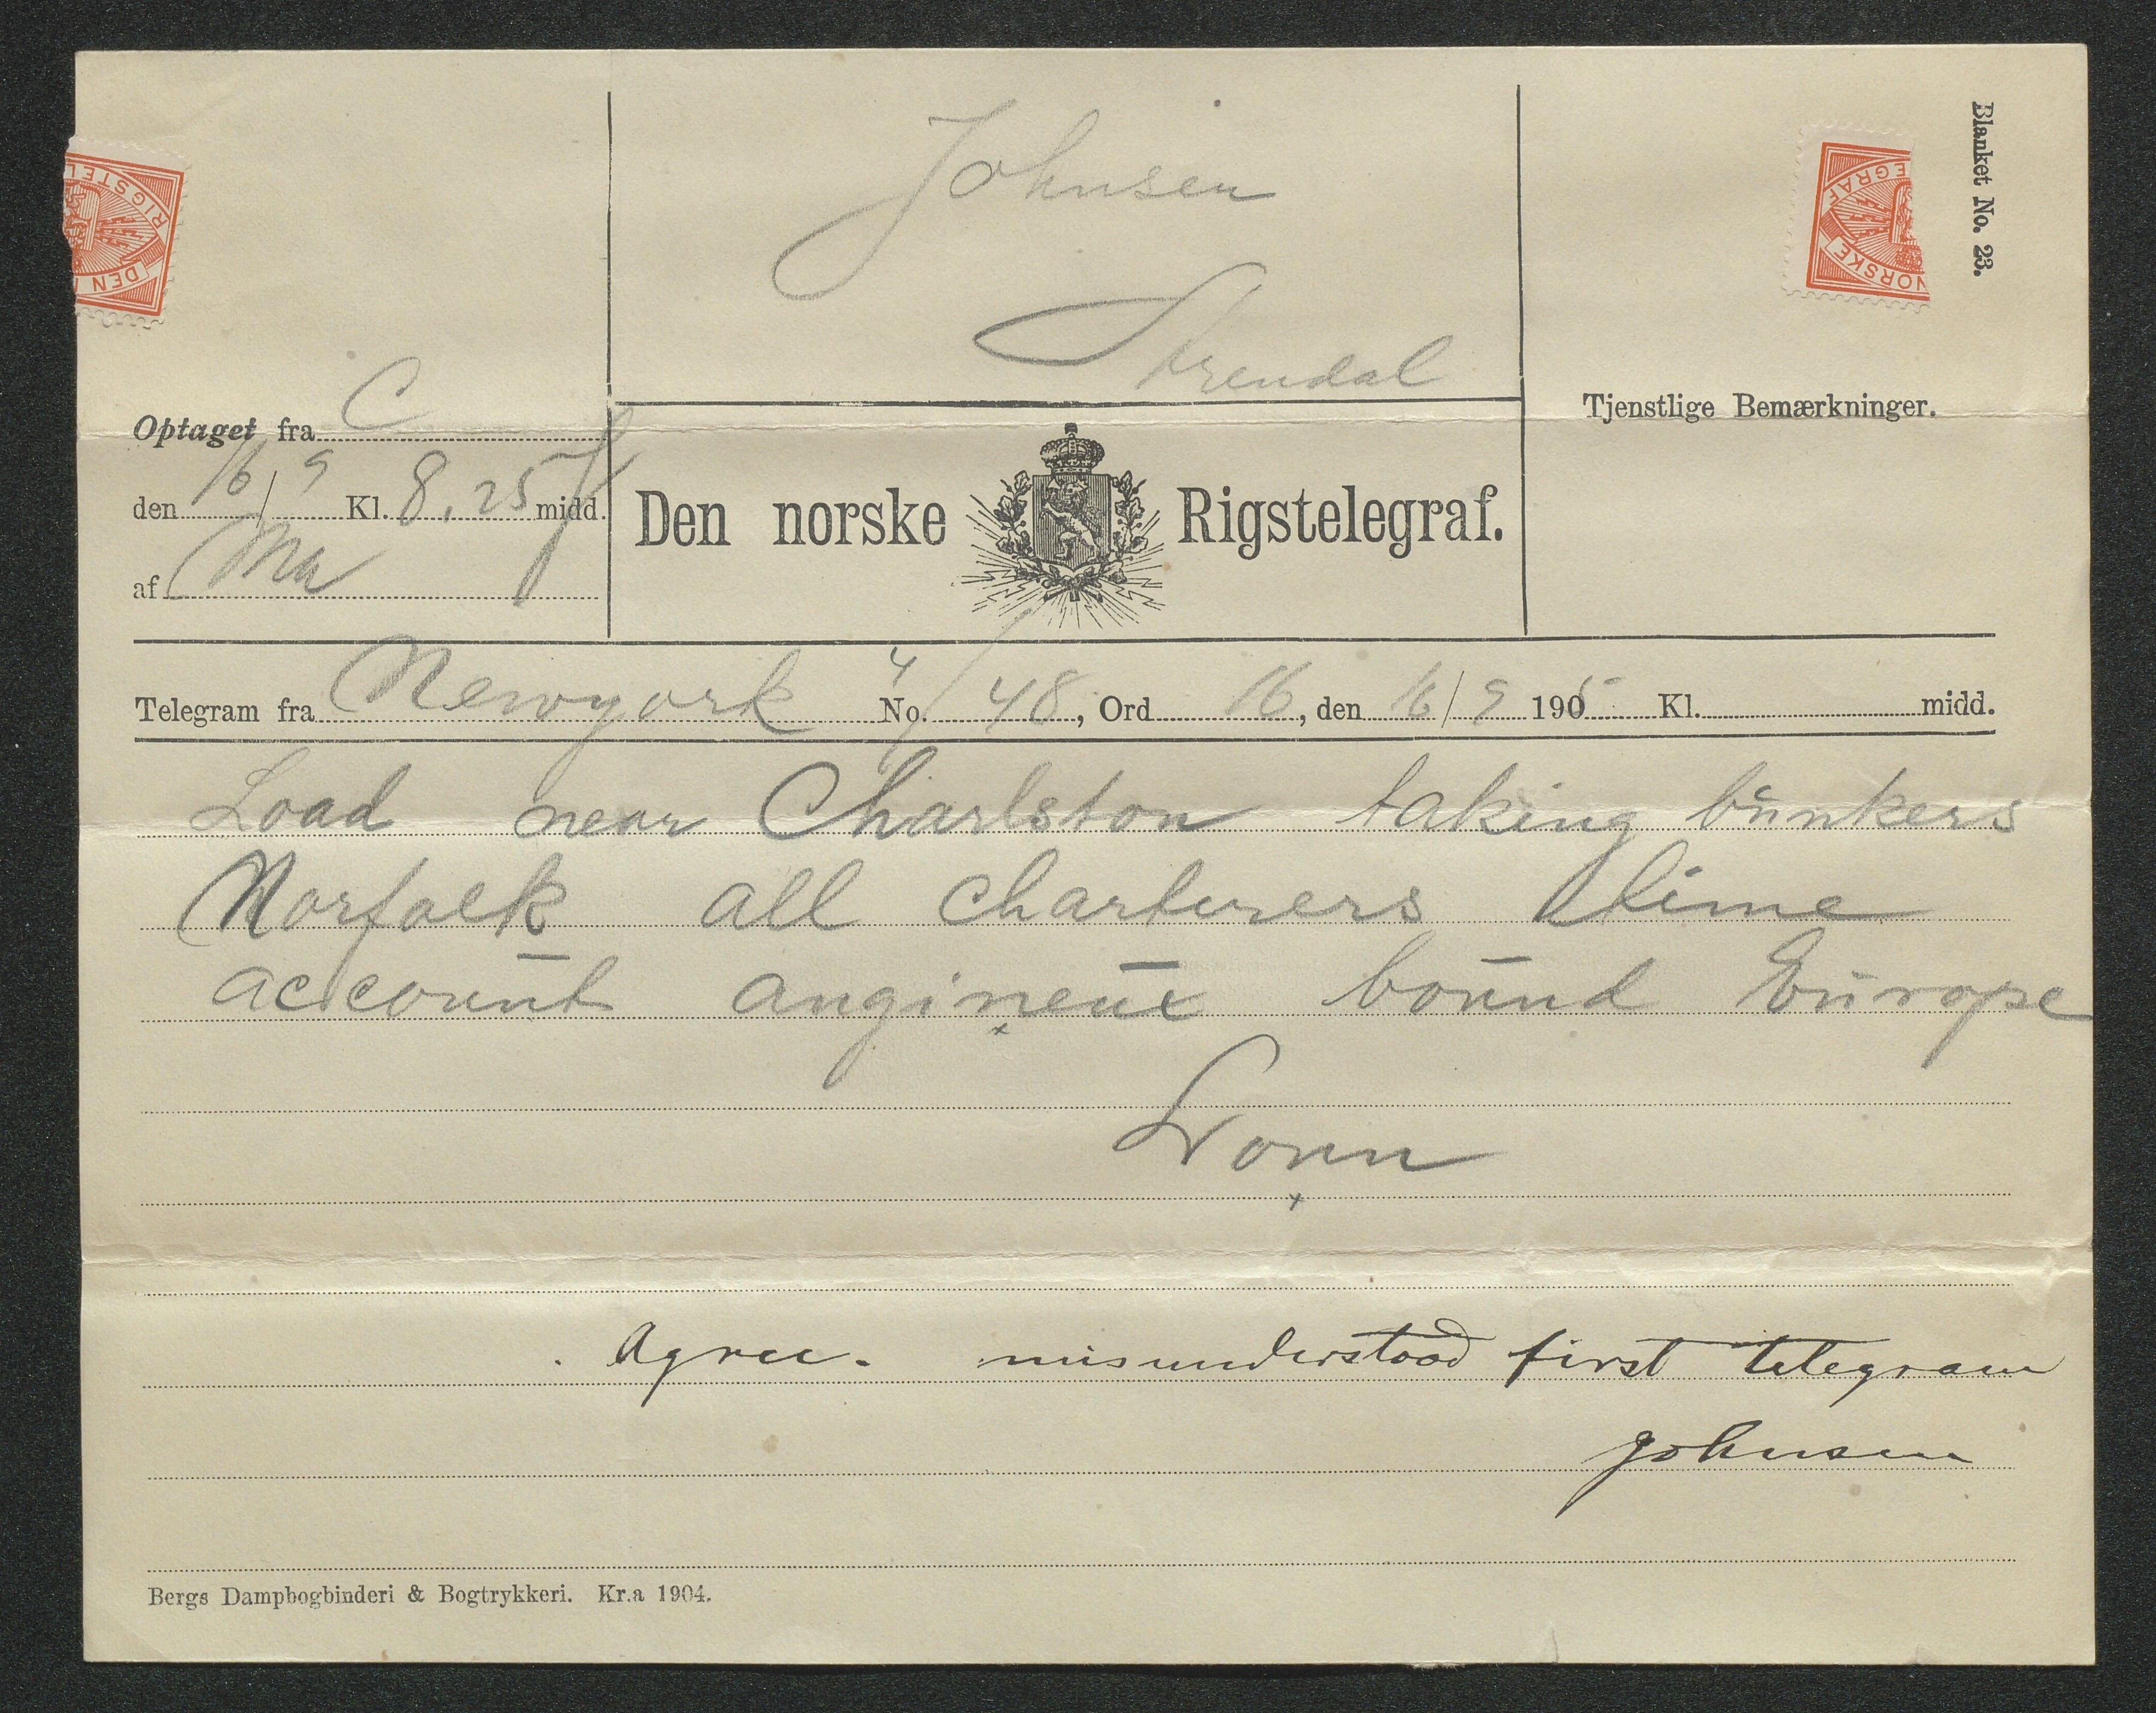 Blanket No. 23.
RIGSTEL
DEN N
EGRAF
NORSKE
Johnsen
Arendal
Optaget fra C
den 16/9 Kl. 8.25 f midd.
af Ma
Den norske Rigstelegraf.
Tjenstlige Bemærkninger.
Telegram fra Newyork No. 4/48, Ord 16, den 16/9 1905 Kl. midd.
Load near Charlston taking bunkers
Norfolk all charterers time
account bound Europe
Agree. misunderstood first telegram
Johnsen
Bergs Dampbogbinderi & Bogtrykkeri. Kr.a 1904.